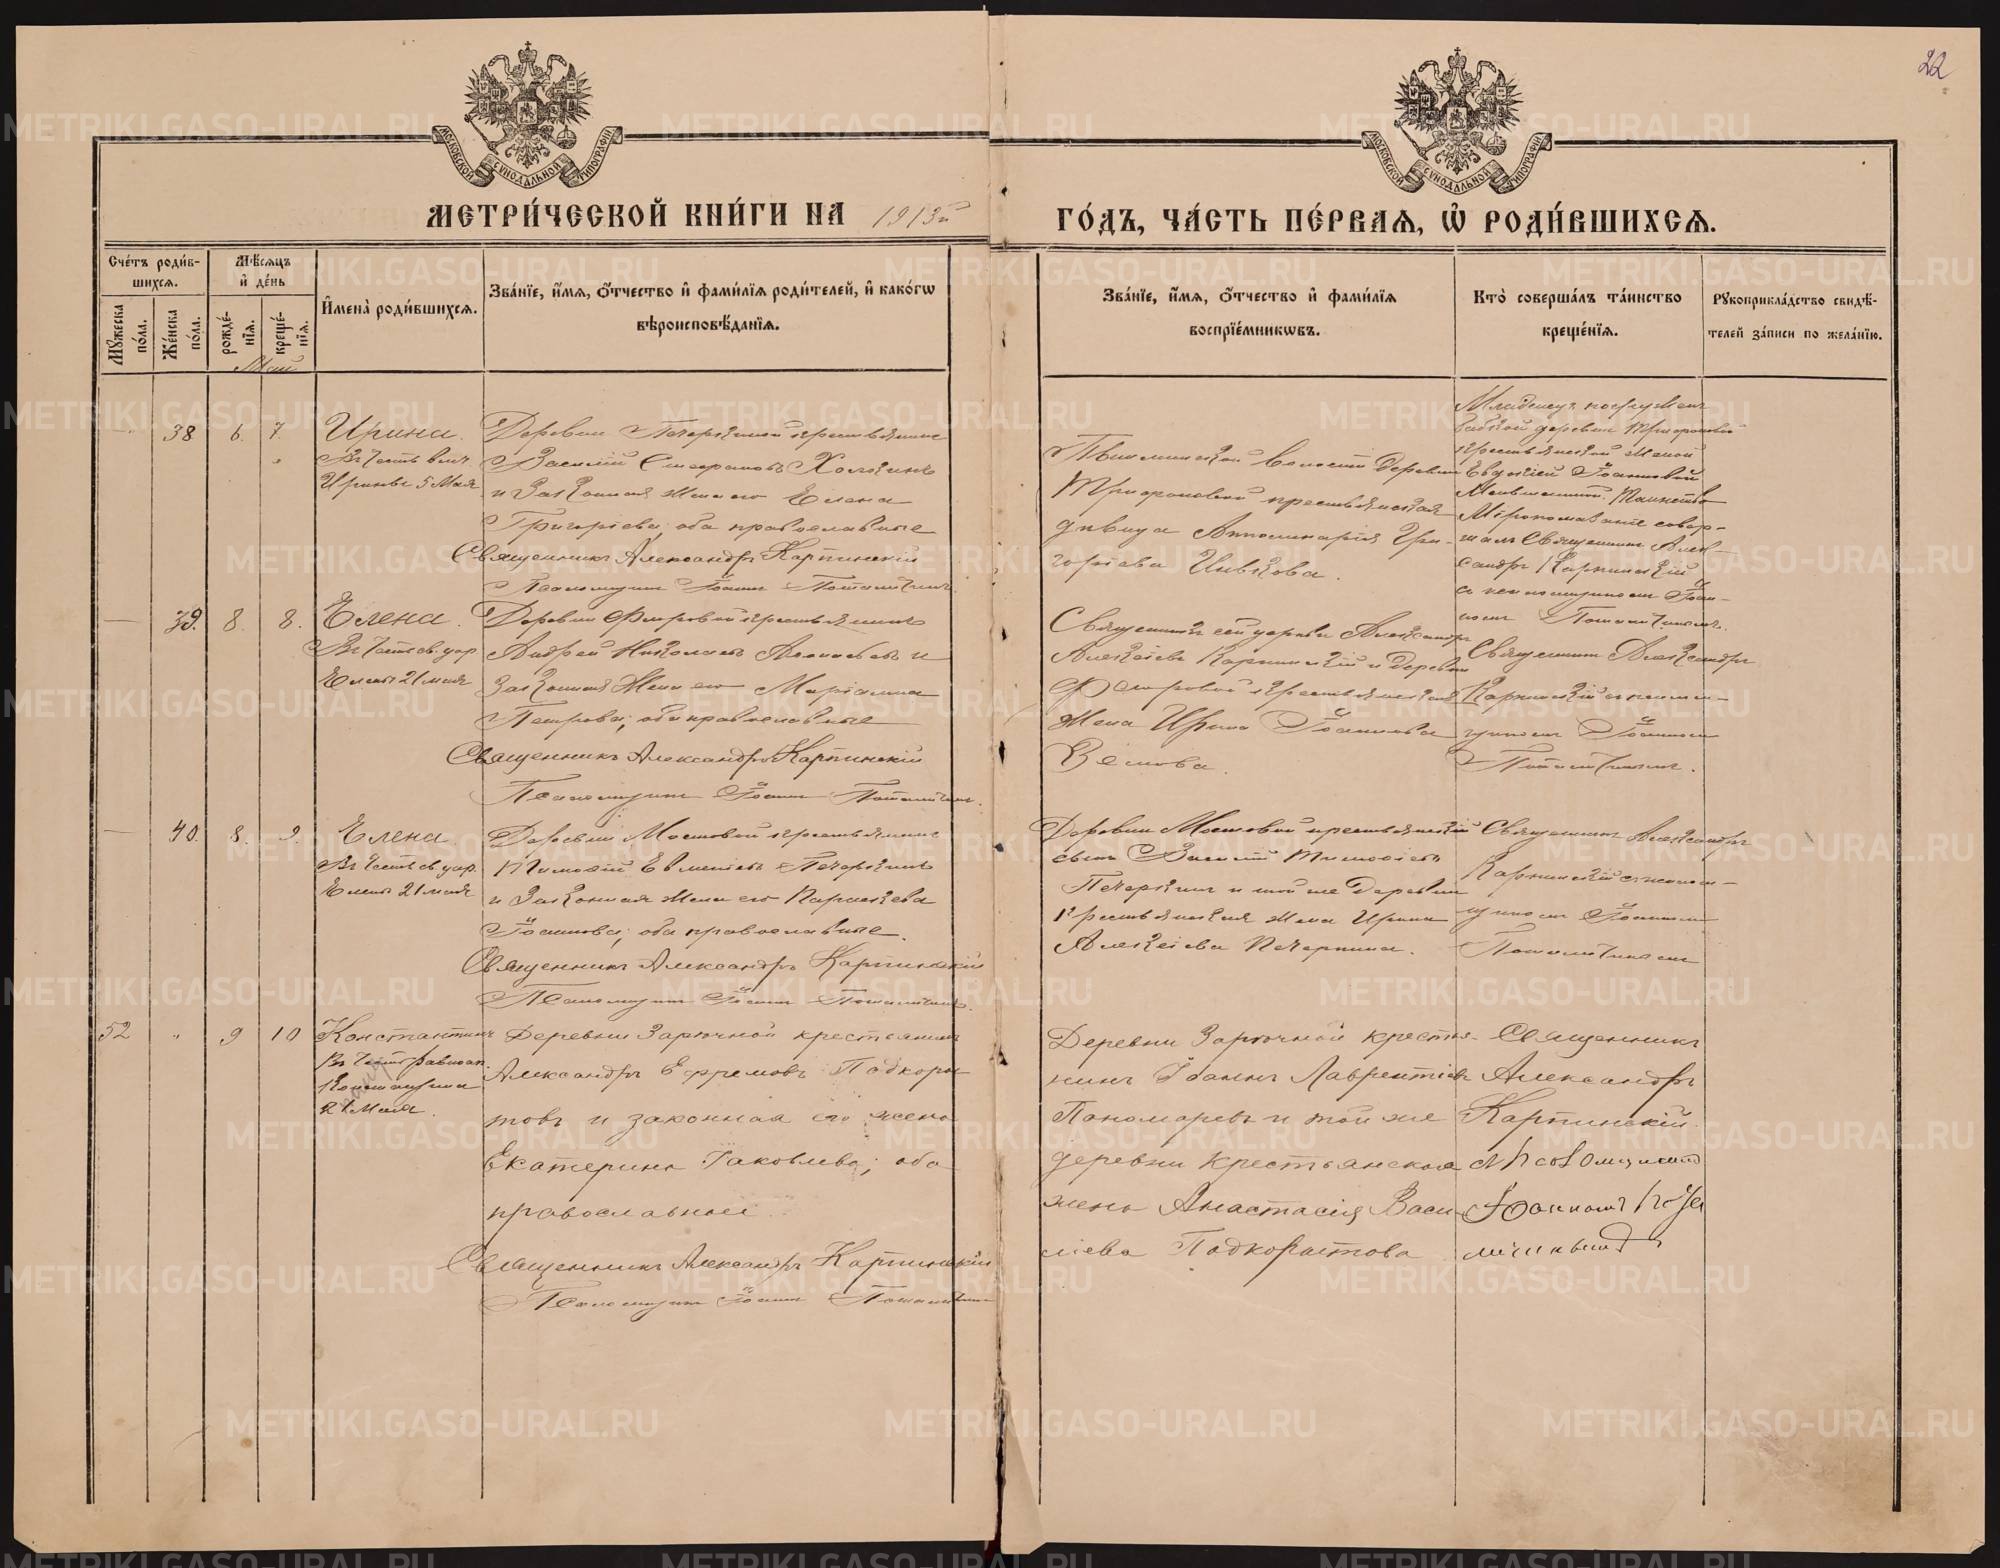 22
МОСКОВСКОЙ СѴНОДАЛЬНОЙ ТИПОГРАФІИ
МОСКОВСКОЙ СѴНОДАЛЬНОЙ ТИПОГРАФІИ
МЕТРИ́ЧЕСКОЙ КНИ́ГИ НА 1913й ГО́ДЪ, ЧА́СТЬ ПЕ́РВАѦ, Ѡ҆ РОДИ́ВШИХСѦ.
Сче́тъ роди́вшихсѧ.
Мꙋ́жеска по́ла.
Же́нска по́ла.
Мѣ́сѧцъ и҆ де́нь
рожде́нїѧ.
креще́нїѧ.
Май
И҆мена̀ роди́вшихсѧ.
Зва́нїе, и҆́мѧ, ѻ҆́тчество и҆ фами́лїѧ роди́телей, и҆ како́гѡ
вѣроисповѣ́данїѧ.
Зва́нїе, и҆́мѧ, ѻ҆́тчество и҆ фами́лїѧ
воспрїе́мникѡвъ.
Кто̀ соверша́лъ та́инство
креще́нїѧ.
Рꙋкоприкла́дство свидѣ́-
телей за́писи по жела́нїю.
38 6. 7.
Ирина.
Въ честь вмч.
Ирины 5 Мая
Деревни Печеркиной крестьянинъ
Василій Стефановъ
и законная жена его Елена
Григоріева; оба православные
Священникъ Александръ Карпинскій
Псаломщикъ Іоаннъ
волости деревни
Трифоновой крестьянская
дѣвица Аполинарія Гри-
горіева
Младенец погружен
бабкой деревни Трифоновой
крестьянской женой
Евдокіей Іоанновой
Таинство
Мѵропомазаніе совер-
шалъ Священникъ Алек-
сандръ Карпинскій
съ псаломщикомъ Іоан-
номъ
39. 8. 8.
Елена.
Въ честь св. цар.
Елены 21 мая
Деревни крестьянинъ
Андрей Николаевъ и
законная жена его
Петрова; оба православные
Священникъ Александръ Карпинскій
Псаломщикъ Іоаннъ
Священникъ сей церкви Александръ
Алексѣевъ Карпинскій и деревни
крестьянская
жена Ирина Іоаннова
Священникъ Александръ
Карпинскій съ псалом-
щикомъ Іоанномъ
40. 8. 9.
Елена
Въ честь св. цар.
Елены 21 мая
Деревни Мостовой крестьянинъ
Тимоѳій Евменіевъ Печеркинъ
и законная жена его Параскева
Іоаннова; оба православные.
Священникъ Александръ Карпинскій
Псаломщикъ Іоаннъ
Деревни Мостовой крестьянскій
сынъ Василій Тимоѳіевъ
Печеркинъ и той же деревни
крестьянская жена Ирина
Алексіева Печеркина.
Священникъ Александръ
Карпинскій съ псалом-
щикомъ Іоанномъ
52 " 9 10
Константинъ
Въ честь равноап.
Константина
21 Мая.
Деревни Зарѣчной крестьянинъ
Александръ Ефремовъ Подкоры-
товъ и законная его жена
Екатерина Іаковлева; оба
православные
Священникъ Александръ Карпинскій
Псаломщикъ Іоаннъ
Деревни Зарѣчной крестья-
нинъ Іоаннъ Лаврентіевъ
Пономаревъ и той же
деревни крестьянская
жена Анастасія Васи-
лiева Подкорытова
Священникъ
Александръ
Карпинскій
съ псаломщикомъ
Іоанномъ
METRIKI.GASO-URAL.RU